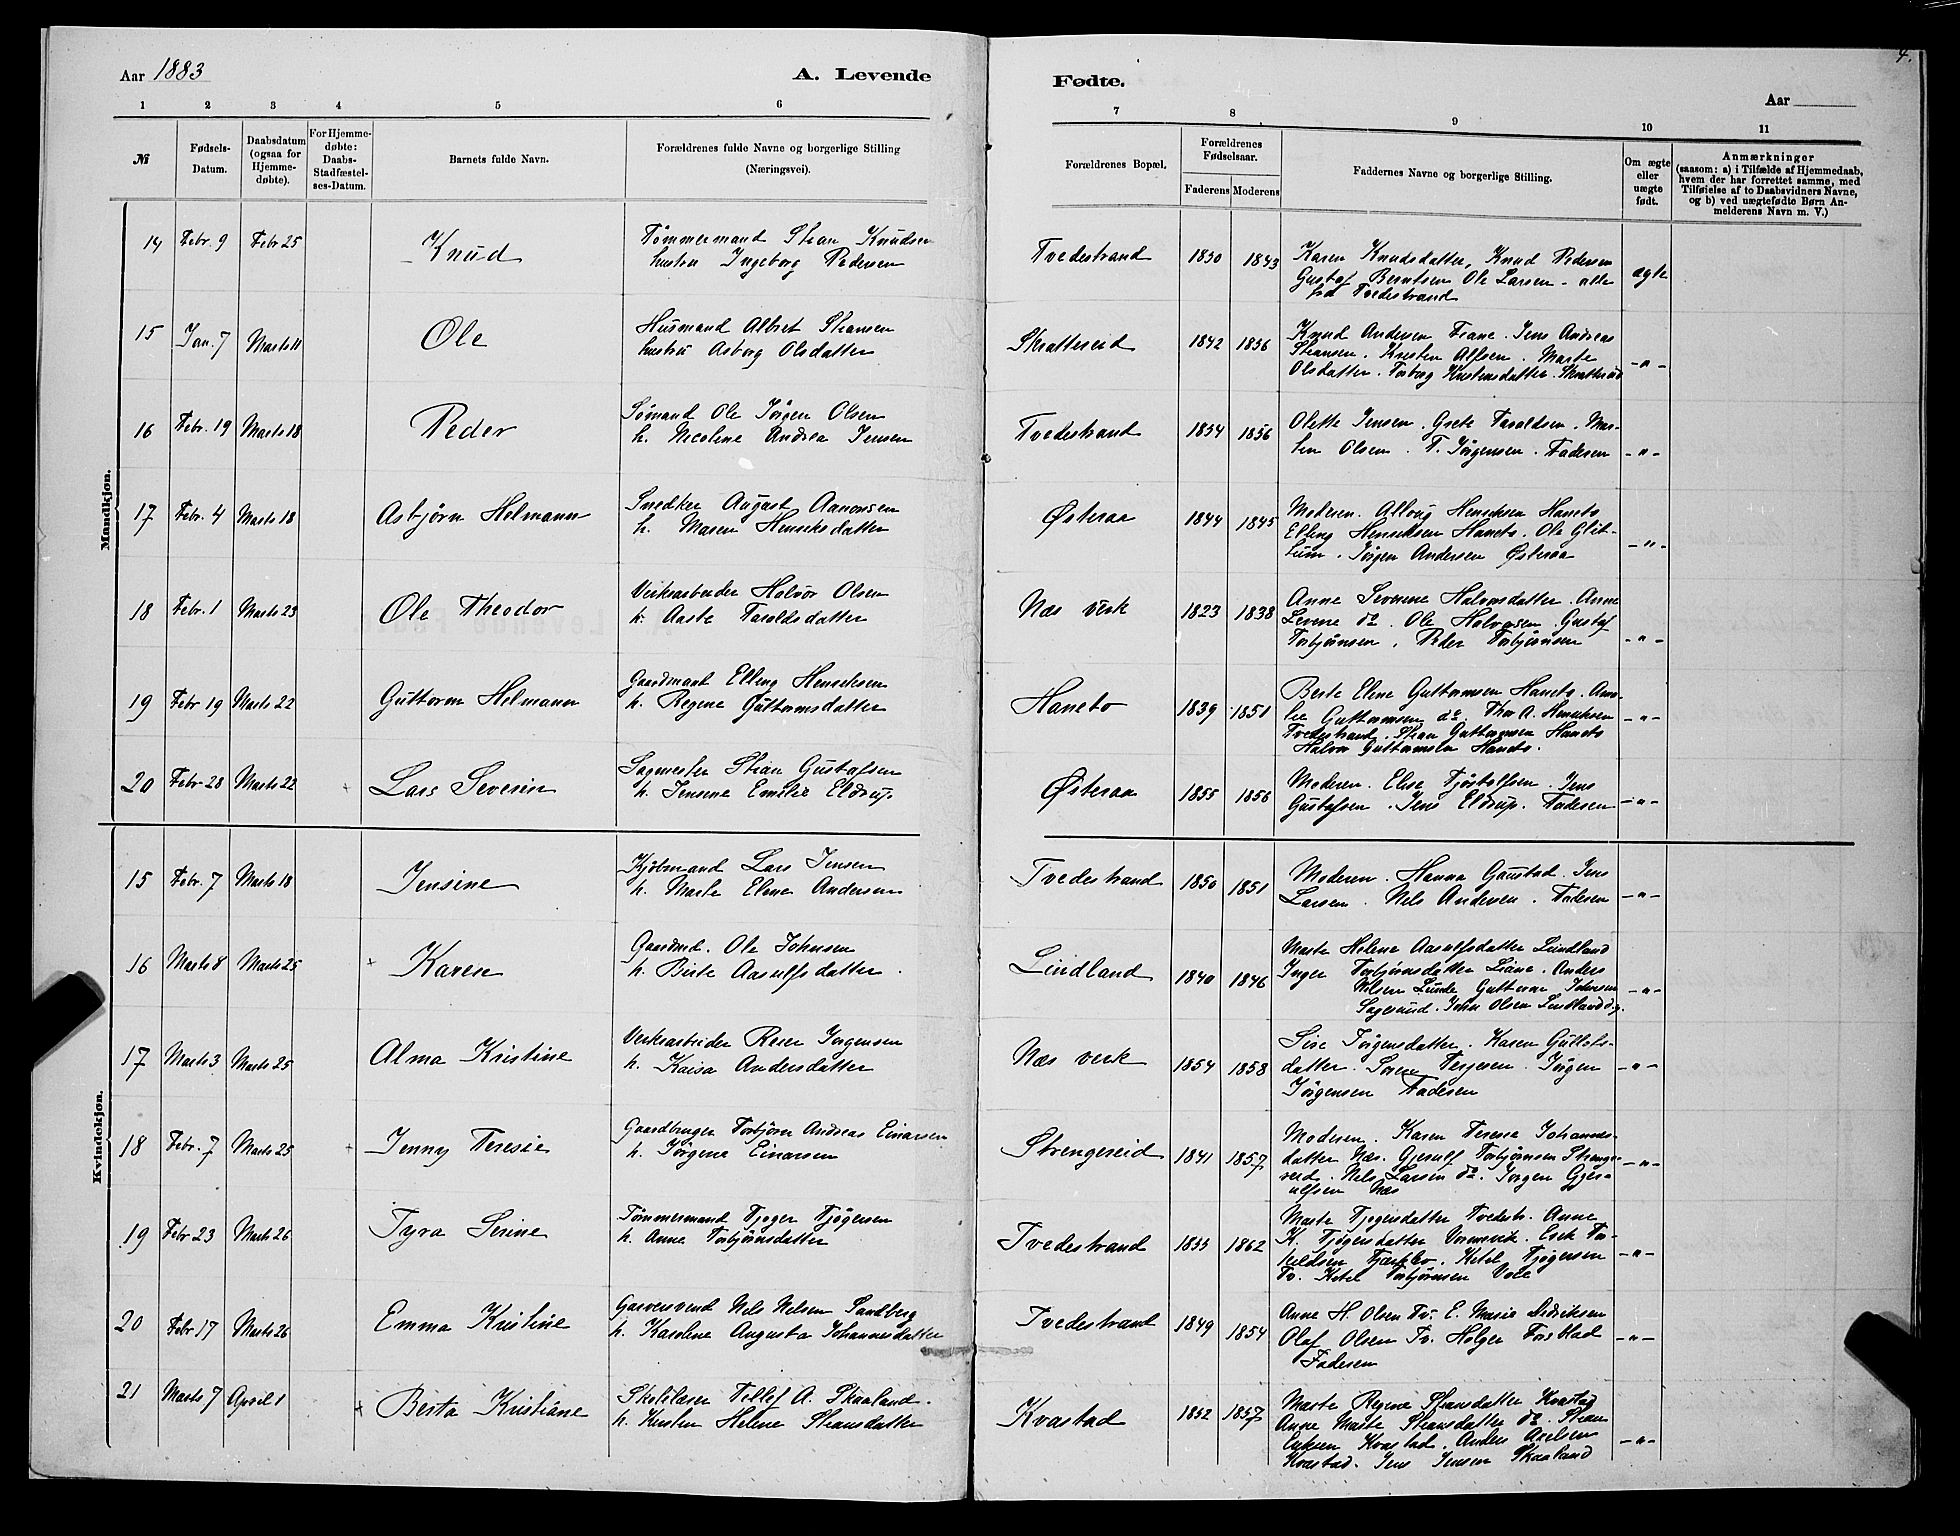 Aar 1883
A. Levende
Fødte.
Aar
4.
1 2 3 4 5 6 7 8 9 10 11
№
Fødsels-
Datum.
Daabsdatum
(ogsaa for
Hjemme-
døbte).
For Hjemme-
døbte:
Daabs-
Stadfæstel-
ses-Datum.
Barnets fulde Navn.
Forældrenes fulde Navne og borgerlige Stilling
(Næringsvei).
Forældrenes Bopæl.
Forældrenes
Fødselsaar.
Faderens Moderens
Faddernes Navne og borgerlige Stilling.
Om ægte
eller
uægte
født.
Anmærkninger
(saasom: a) i Tilfælde af Hjemmedaab,
hvem der har forrettet samme, med
Tilføielse af to Daabsvidners Navne,
og b) ved uægtefødte Børn An-
melderens Navn m. V.)
Mandkjøn.
14 Febr. 9 Febr 25 Knud
Tømmermand Stian Knudsen
hustru Ingeborg Pedersen
Tvedestrand 1850 1843
Karen Knudsdatter, Knud Pedersen
Gustaf Berntsen Ole Larsen - alle
fra Tvedestrand
ægte
15 Jan. 7 Marts 11 Ole
Husmand Albret Stiansen
hustru Asborg Olsdatter
Skattereid 1842 1856
Knud Andersen Fiane. Jens Andreas
Stiansen. Kristen Alfsen. Marte
Olsdatter. Torborg Kristensdatter.
-"-
16 Febr. 19 Marts 18 Peder
Sømand Ole Jörgen Olsen
h. Nicoline Andrea Jensen
Tvedestrand 1854 1856
Olette Jensen. Grete Taraldsen. Mar-
tin Olsen. T. Jörgensen. Faderen
-"-
17 Febr. 4 Marts 18 Asbjørn Helmann
Snedker August Aanonsen
h. Maren Henriksdatter
Østeraa 1844 1845
Moderen. Henriksen Haneto
Elling Henriksen Haneto. Ole
Jörgen Andersen Østeraa
-"-
18 Febr. 1 Marts 23 Ole Theodor
Verksarbeider Halvor Olsen
h. Aaste Taraldsdatter
Næs verk 1823 1838
Anne Severine Halvorsdatter. Anne
Levine do. Ole Halvorsen. Gustaf
Torbjörnsen. Peder Torbjörnsen
-"-
19 Febr 19 Marts 22 Guttorm Helmann
Gaardmand Elling Henriksen
h. Regine Guttormsdatter
Haneto 1839 1851
Berte Eline Guttormsen Haneto. Ama-
lie Guttormsen do. Thor A. Henriksen
Tvedestrand. Stian Guttormsen Haneto
Halvor Guttormsen Haneto.
-"-
20 Febr 28 Marts 22 Lars Severin
Sagmester Stian Gustafsen
h. Jensine Emilie Eldrup.
Østeraa 1855 1856
Moderen. Elise Tjöstolfsen. Jens
Gustafsen. Jens Eldrup. Faderen
-"-
Kvindekjøn.
15 Febr. 7 Marts 18 Jensine
Kjøbmand Lars Jensen
h. Marte Eline Andersen
Tvedestrand 1850 1851
Moderen. Hanna Gaustad. Jens
Larsen. Nils Andersen. Faderen
-"-
16 Marts 8 Marts 25 Karen
Gaardmd. Ole Johnsen
h. Birte Aasulfsdatter
Lindland 1840 1846
Marte Helene Aasulfsdatter Lundland
Inger Torbjörnsdatter Liane. Anders
Nilsen Lunde Guttorm Johnsen
Sagesund. John Olsen Lindland
-"-
17 Marts 3 Marts 25 Alma Kristine
Verksarbeider Reier Jørgensen
h. Kaisa Andersdatter
Næs verk 1854 1858
Sise Jörgensdatter. Karen
datter. Terjesen. Jörgen
Jörgensen Faderen
-"-
18 Febr. 7 Marts 25 Jenny Teresie
Gaardbruger Torbjörn Andreas Einarsen
h. Jörgine Einarsen
Strengereid 1841 1857
Moderen. Karen Terese Johannes-
datter Næs. Gjerulf Torbjörnsen Strenge-
reid. Nils Larsen do. Jörgen Gjer-
ulfsen Næs
-"-
19 Febr 23 Marts 26 Tyra Serine
Tømmermand Tjöger Tjögersen
h. Anne Torbjörnsdatter
Tvedestrand 1855 1862
Marte Tjögersdatter Tvedestr. Anne
K. Tjögersdatter
Ketel Tjögersen
Tv. Ketel Torbjörnsen
-"-
20 Febr 17 Marts 26 Emma Kristine
Garversvend Nils Nilsen Sandberg
h. Karoline Augusta Johannsdatter
Tvedestrand 1849 1854
Anne H. Olsen Tv. E. Marie Didriksen
Olaf Olsen Tv. Holger
Faderen
-"-
21 Marts 7 April 1 Berta Kristiane
Skolelærer Tellef A. Skaaland.
h. Kirsten Helene Stiansdatter
Kvastad 1852 1857
Marte Regine Stiansdatter Kvastad
Anne Marte Stiansdatter do. Stian
Eriksen Kvastad. Anders Axelsen
Kvastad. Jens Jensen Skaaland
-"-